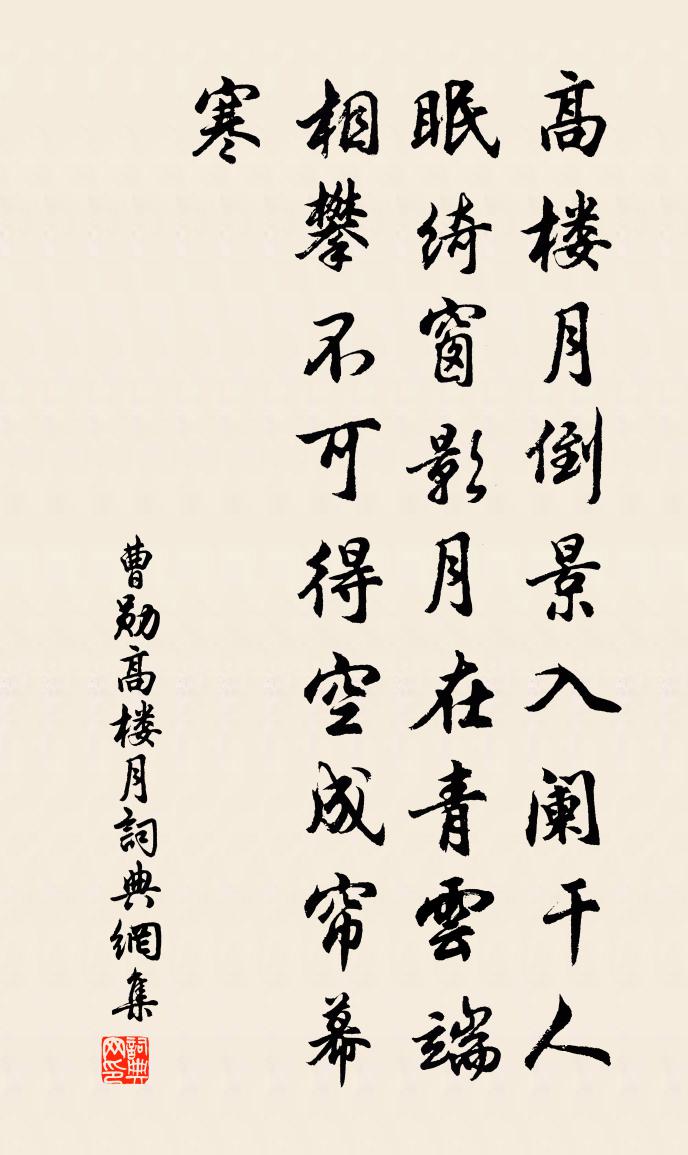 高楼月倒景入阑干人
眠绮窗影月在青雲端
相攀不可得空成帘幕
寒
曹勋高楼月詞典網集
詞典网印